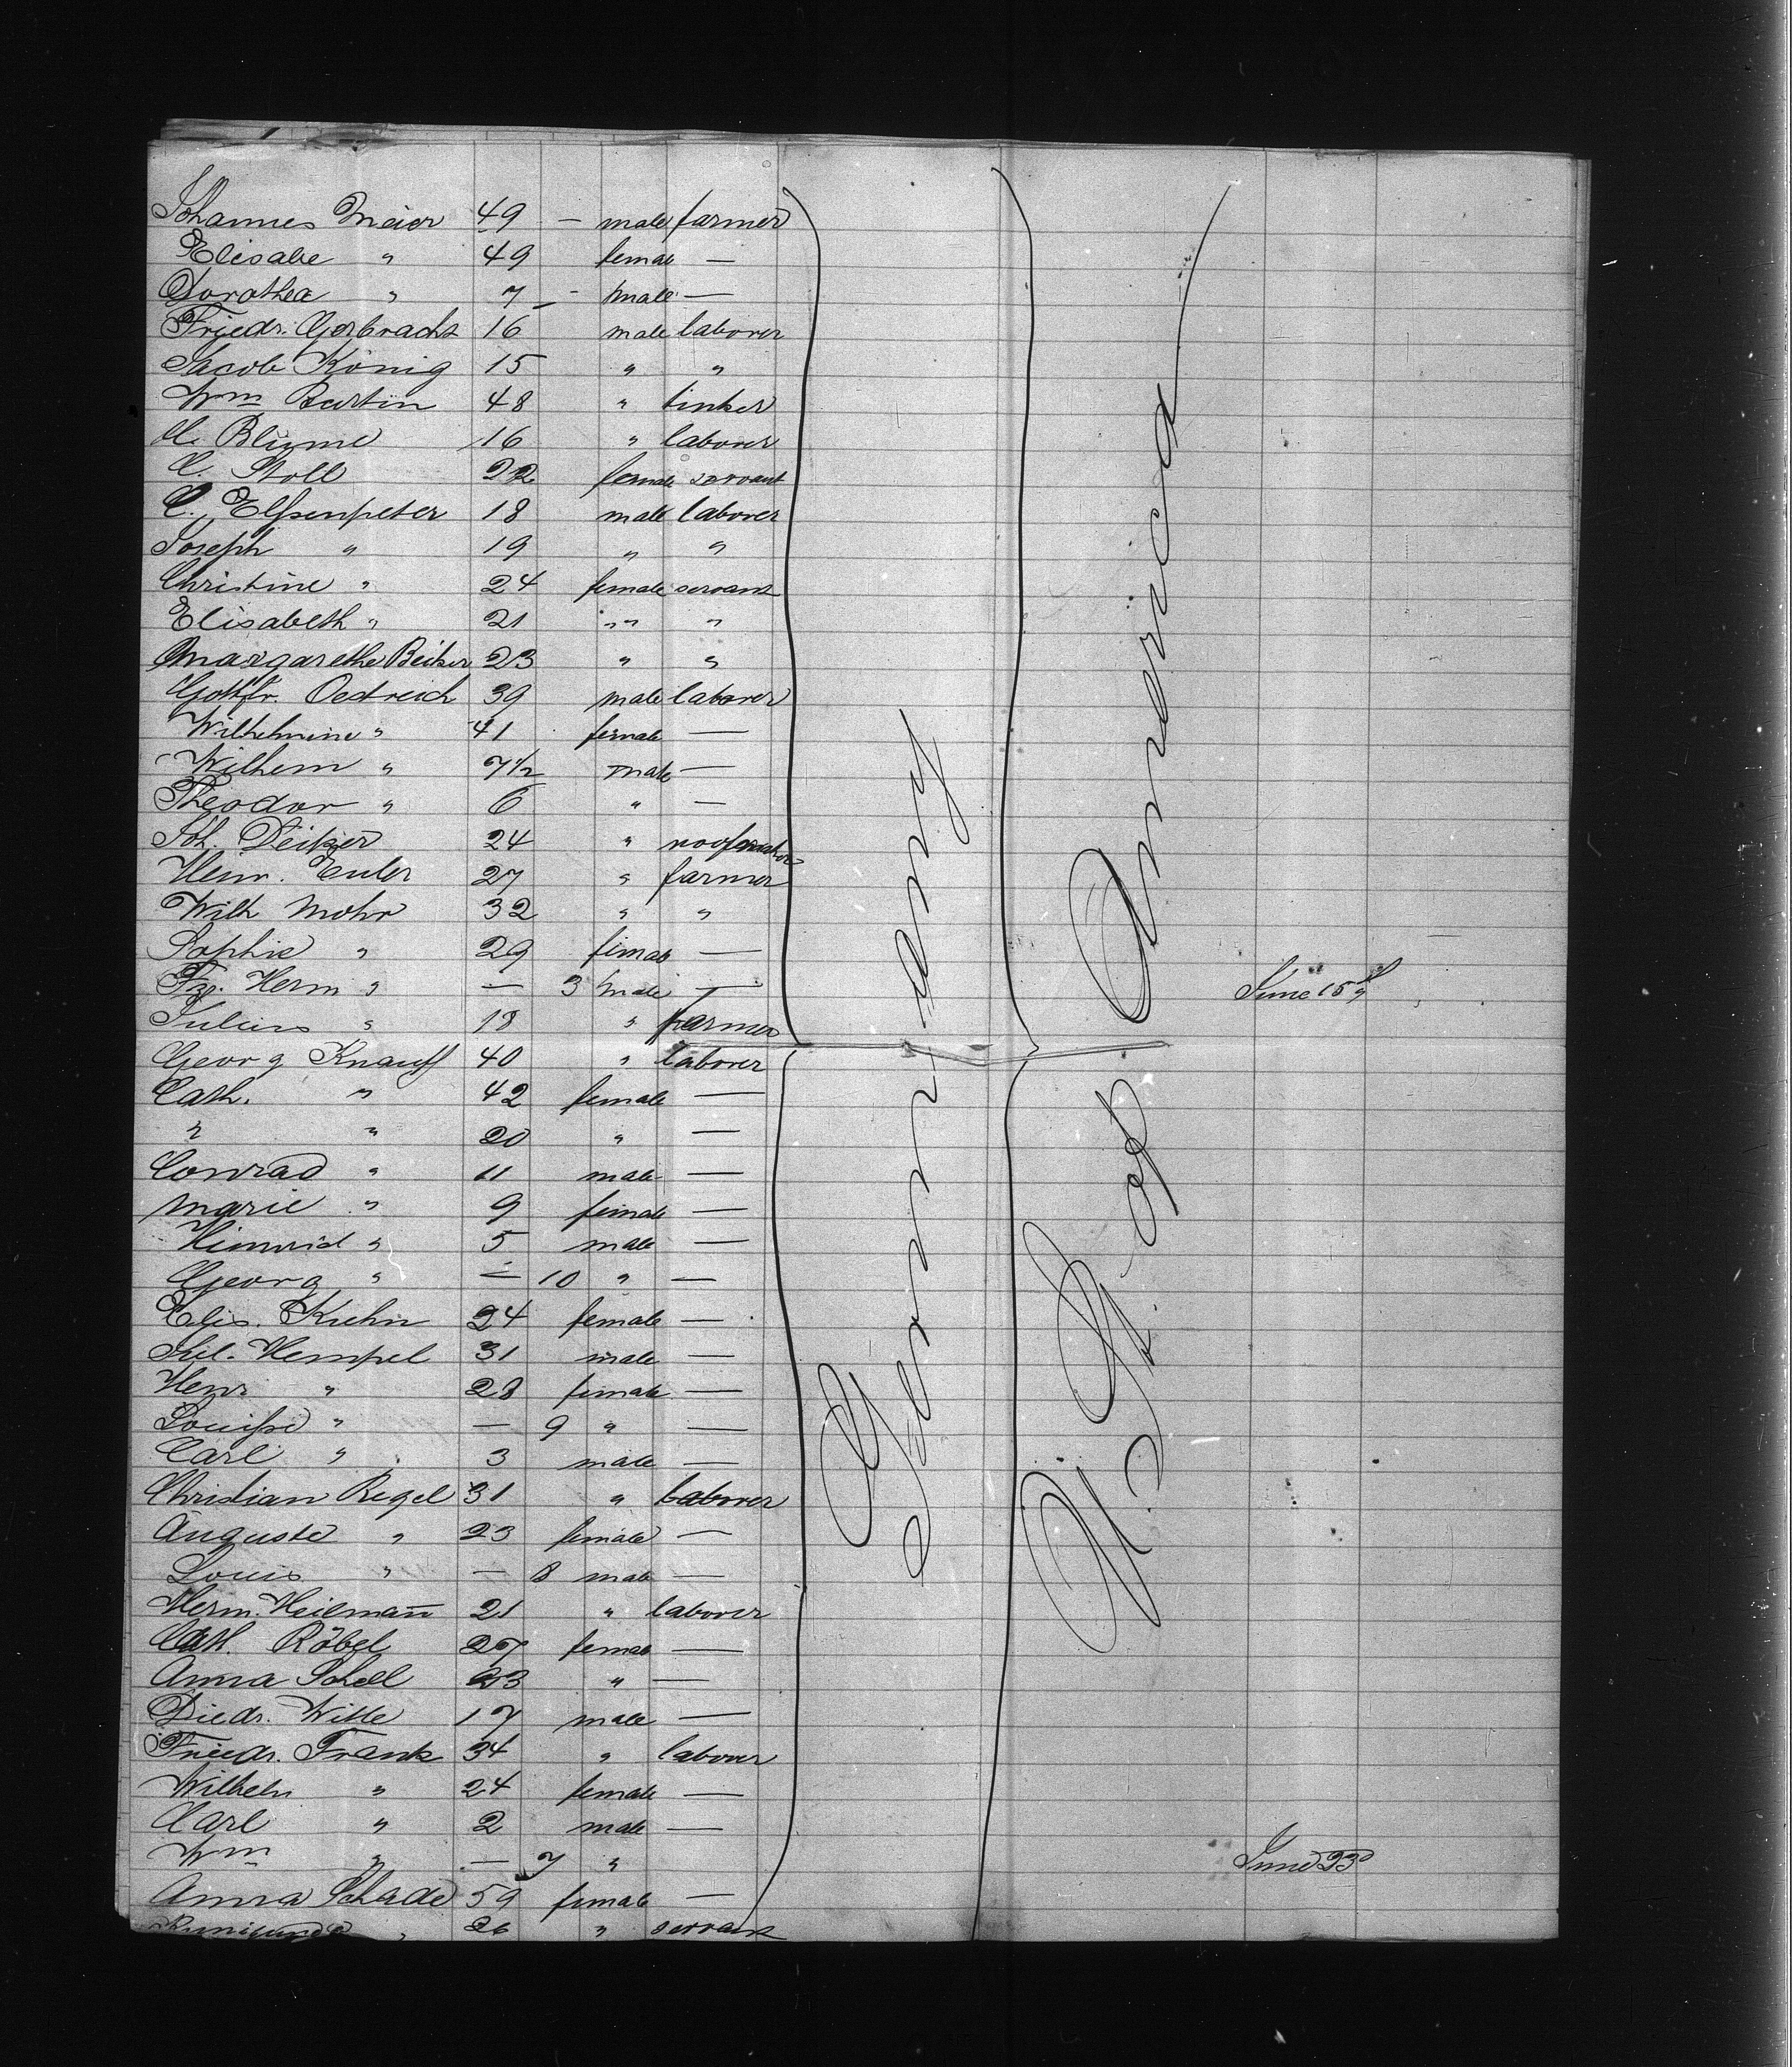 Johannes Meier 49 — male farmer
Elisabe " 49 femal —
Dorothea " 7 — male —
Friedr. Gerbracht 16 male laborer
Jacob König 15 " "
Wm Bertin 48 " tinker
H. Blume 16 " laborer
C. Stoll 22 female servant
C. Elßenpeter 18 male laborer
Joseph " 19 " "
Christine " 24 female servant
Elisabeth " 21 " "
Margarethe Beiker 23 " "
Gottfr. Oedreich 39 male laborer
Wilhelmine " 41 female —
Wilhem " 7 1/2 male —
Theodor " 6 " —
Joh. Deitzer 24 "
Heinr. Euler 27 " farmer
Wilh Mohr 32 " "
Sophie " 29 femal —
Herm " — 3 male —
Julius " 18 " farmer
Georg Knauff 40 " laborer
Cath. " 42 female —
" " 20 " —
Conrad " 11 male —
Marie " 9 female —
Heinrich " 5 male —
Georg " — 10 " —
Elis. Kuhn 24 female —
Hempel 31 male —
Henr " 28 female —
Louiße " — 9 " —
Carl " 3 male —
Christian Regel 31 " laborer
Auguste " 23 female —
Louis " — 8 male —
Herm. Heilmañ 21 " laborer
Cath. Röbel 27 female —
Anna Schell 23 " —
Diedr. Witte 17 male —
Friedr. Frank 34 " laborer
Wilhelm " 24 female —
Carl " 2 male —
Wm " — 7 "
Anna Schade 59 female —
Kunigunde " 26 " servant
Germany
U. St. of America
June 15th
June 23d